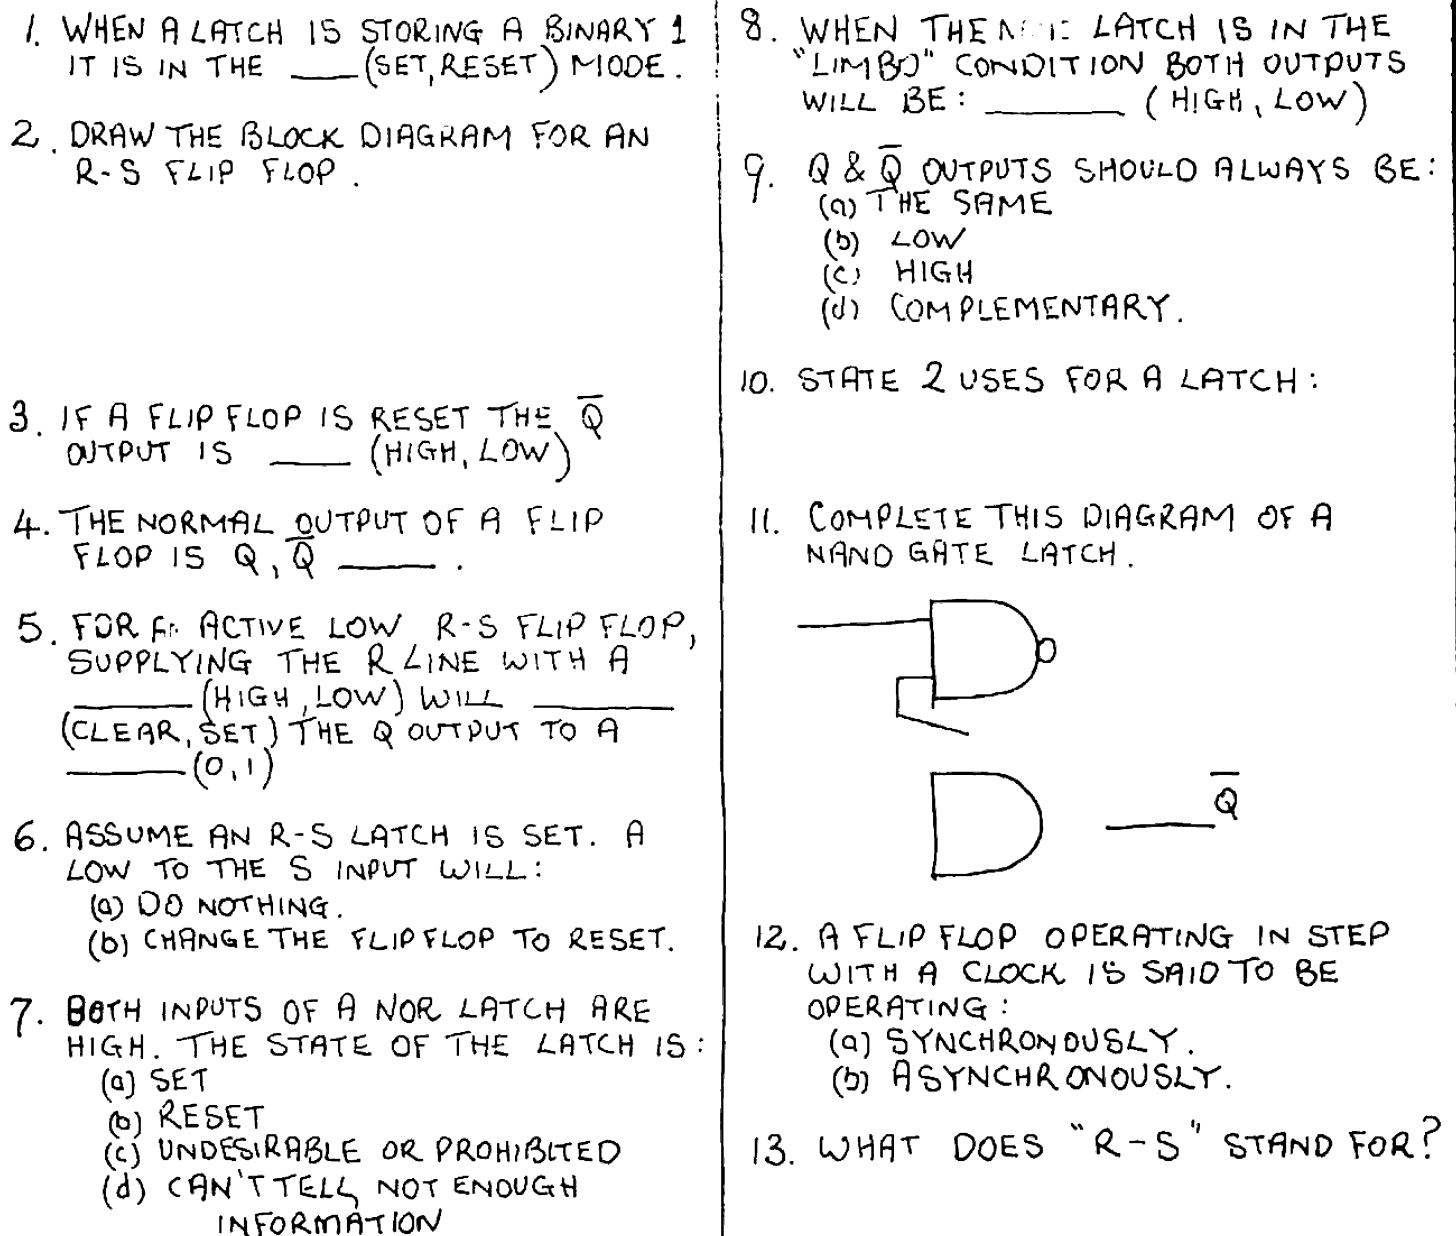 1. WHEN A LATCH IS STORING A BINARY 1
IT IS IN THE ____ (SET, RESET) MODE.
2. DRAW THE BLOCK DIAGRAM FOR AN
R-S FLIP FLOP.
3. IF A FLIP FLOP IS RESET THE Q̅
OUTPUT IS ____ (HIGH, LOW)
4. THE NORMAL OUTPUT OF A FLIP
FLOP IS Q, Q̅ ____.
5. FOR ACTIVE LOW R-S FLIP FLOP,
SUPPLYING THE R LINE WITH A
____ (HIGH, LOW) WILL ____
(CLEAR, SET) THE Q OUTPUT TO A
____ (0,1)
6. ASSUME AN R-S LATCH IS SET. A
LOW TO THE S INPUT WILL:
(a) DO NOTHING.
(b) CHANGE THE FLIP FLOP TO RESET.
7. BOTH INPUTS OF A NOR LATCH ARE
HIGH. THE STATE OF THE LATCH IS:
(a) SET
(b) RESET
(c) UNDESIRABLE OR PROHIBITED
(d) CAN'T TELL, NOT ENOUGH
INFORMATION
8. WHEN THE LATCH IS IN THE
"LIMBO" CONDITION BOTH OUTPUTS
WILL BE: ____ (HIGH, LOW)
9. Q & Q̅ OUTPUTS SHOULD ALWAYS BE:
(a) THE SAME
(b) LOW
(c) HIGH
(d) COMPLEMENTARY.
10. STATE 2 USES FOR A LATCH:
11. COMPLETE THIS DIAGRAM OF A
NAND GATE LATCH.
Q̅
12. A FLIP FLOP OPERATING IN STEP
WITH A CLOCK IS SAID TO BE
OPERATING:
(a) SYNCHRONOUSLY.
(b) ASYNCHRONOUSLY.
13. WHAT DOES "R-S" STAND FOR?